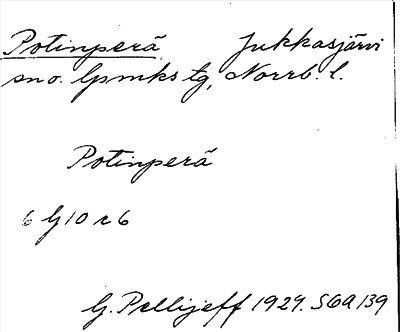 Potinperä Jukkasjärvi
sno. lpmks tg, Norrb. l.
Potinperä
6 G 10 r 6
G. Pellijeff 1929. S6A 139